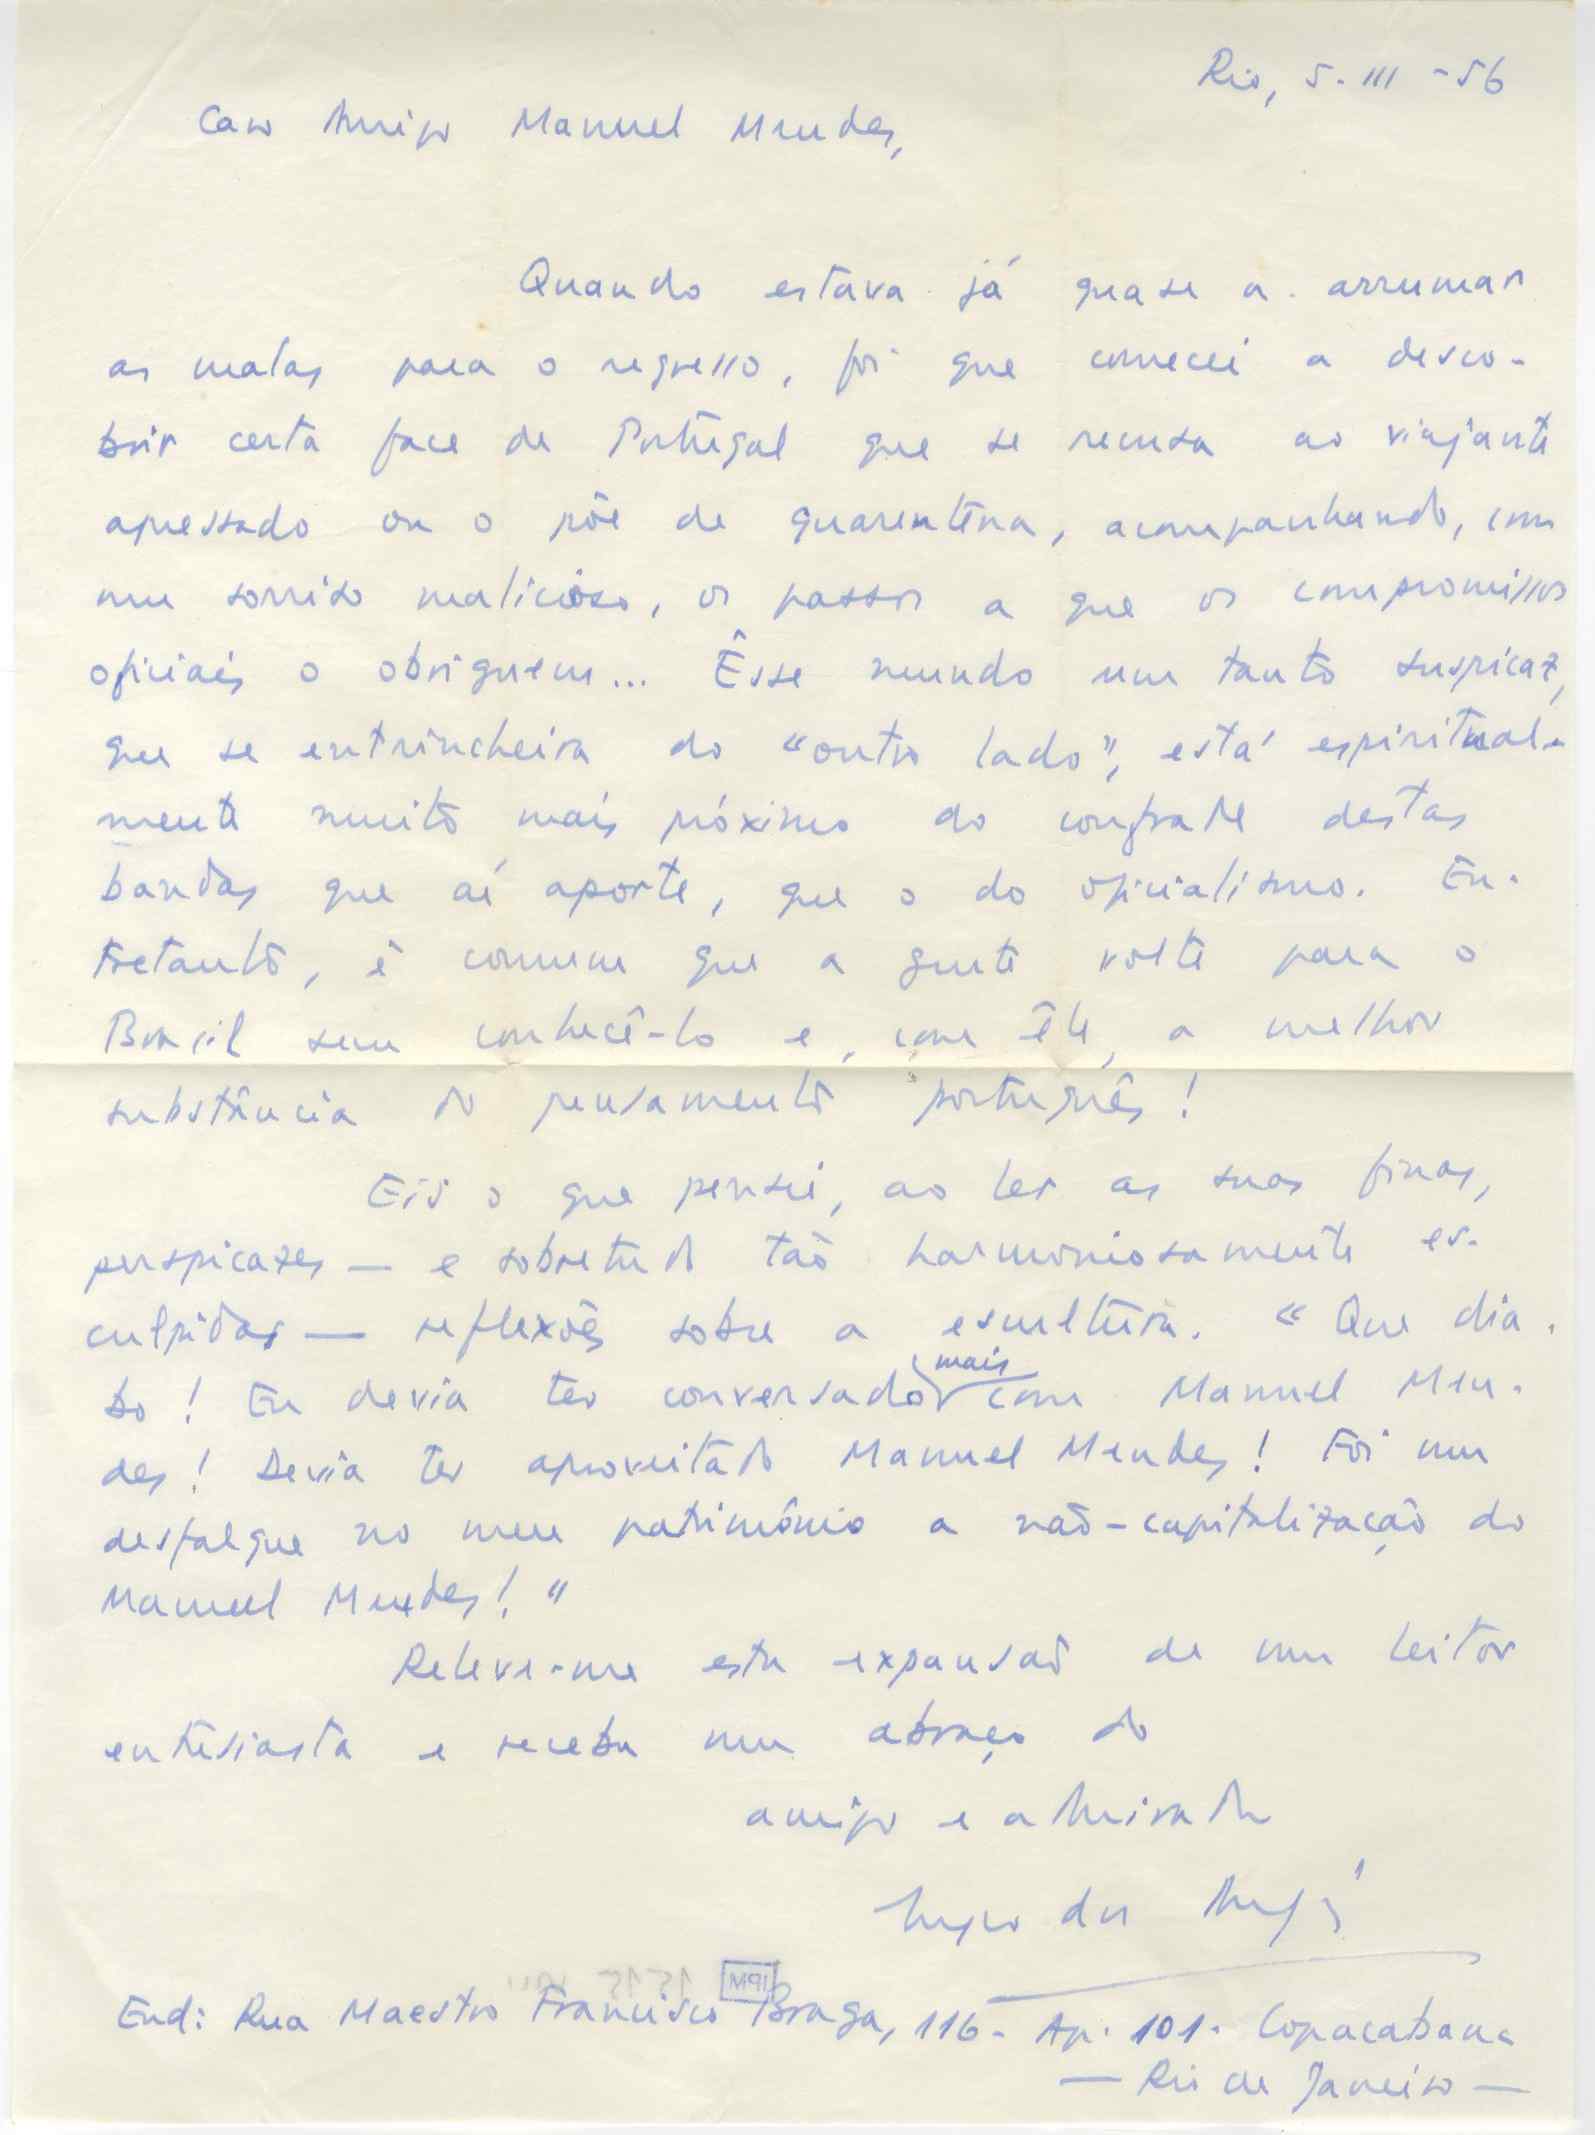 Rio, 5-III-56
Caro Amigo Manuel Mendes,
Quando estava já quase a arrumar
as malas para o regresso, foi que comecei a desco-
brir certa face de Portugal que se recusa ao viajante
apressado ou o põe de quarentena, acompanhando, com
um sorriso malicioso, os passos a que os compromissos
oficiais o obriguem... Êsse mundo um tanto suspicaz,
que se entrincheira do "outro lado", está espiritual-
mente muito mais próximo do confrade destas
bandas que aí aporte, que o do oficialismo. En-
tretanto, é comum que a gente volte para o
Brasil sem conhecê-lo e, com êle, a melhor
substância do pensamento português!
Eis o que pensei, ao ler as suas finas,
perspicazes — e sobretudo tão harmoniosamente es-
culpidas — reflexões sobre a escultura. "Que dia-
bo! Eu devia ter conversado mais com Manuel Men-
des! Devia ter aproveitado Manuel Mendes! Foi um
desfalque no meu patrimônio a não-capitalização do
Manuel Mendes!"
Releve-me esta expansão de um leitor
entusiasta e receba um abraço do
amigo e admirador
End: Rua Maestro Francisco Braga, 116 - Ap. 101. Copacabana
— Rio de Janeiro —